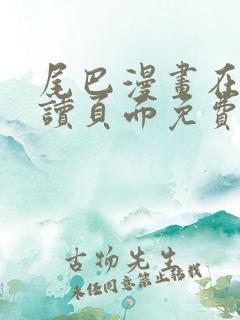 尾巴漫畫在
讀頁面免費
古物先生
未经同意禁止转载